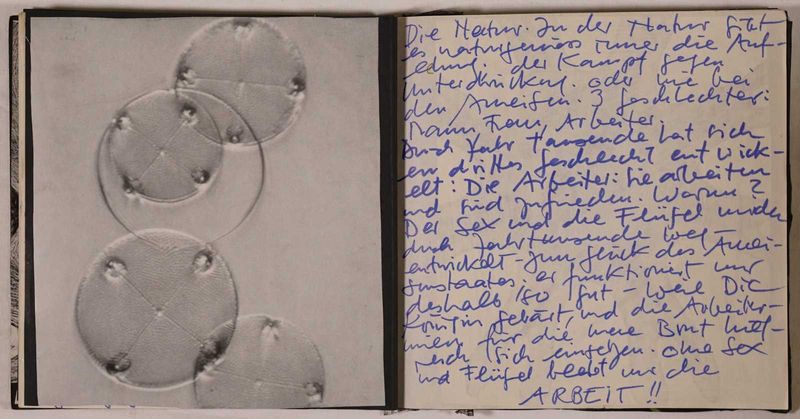 Die Natur. In der Natur gibt
es naturgemäss immer die Auf-
der Kampf gegen
Unterdrückung. oder wie bei
den Ameisen. 3 Geschlechter:
Mann, Frau, Arbeiter.
Durch Jahrtausende hat sich
ein drittes Geschlecht entwick-
elt: Die Arbeiter: Sie arbeiten
und sind zufrieden. Warum?
Der Sex und die Flügel wurden
durch Jahrtausende weg-
entwickelt – zum Glück des Amei-
senstaates. er funktioniert nur
deshalb so gut – weil Die
Königin gebärt, und die Arbeiter-
innen für die neue Brut
sich einsetzen. ohne Sex
und Flügel bleibt nur die
ARBEIT!!